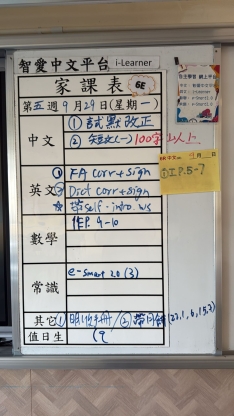 智愛中文平台 i-Learner
家課表 6E
第五週9月29日(星期一)
中文
① 試默改正
② 短文(一) 100字以上
英文
① FA corr + sign
② Dict corr + sign
☆ 帶self-intro ws
數學
作P. 9-10
常識
e-smart 20 (3)
其它
① 明以手冊/② 帶同
值日生
① I.P.5-7